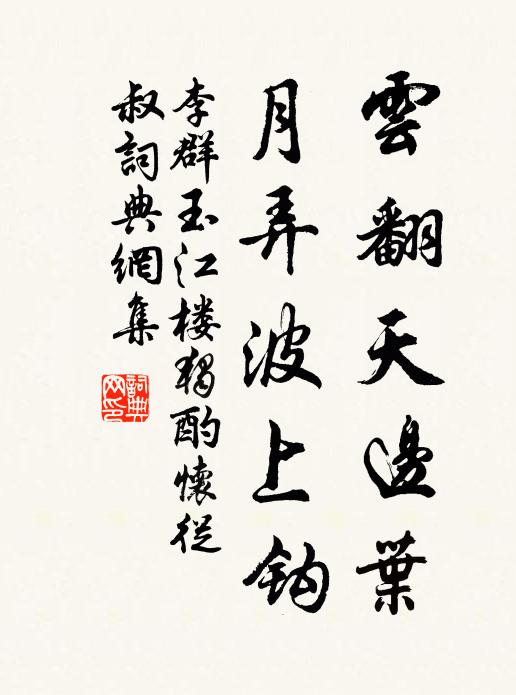 雲翻天邊葉
月弄波上鈎
李群玉江楼獨酌懷從
叔詞典網集
詞典
网印